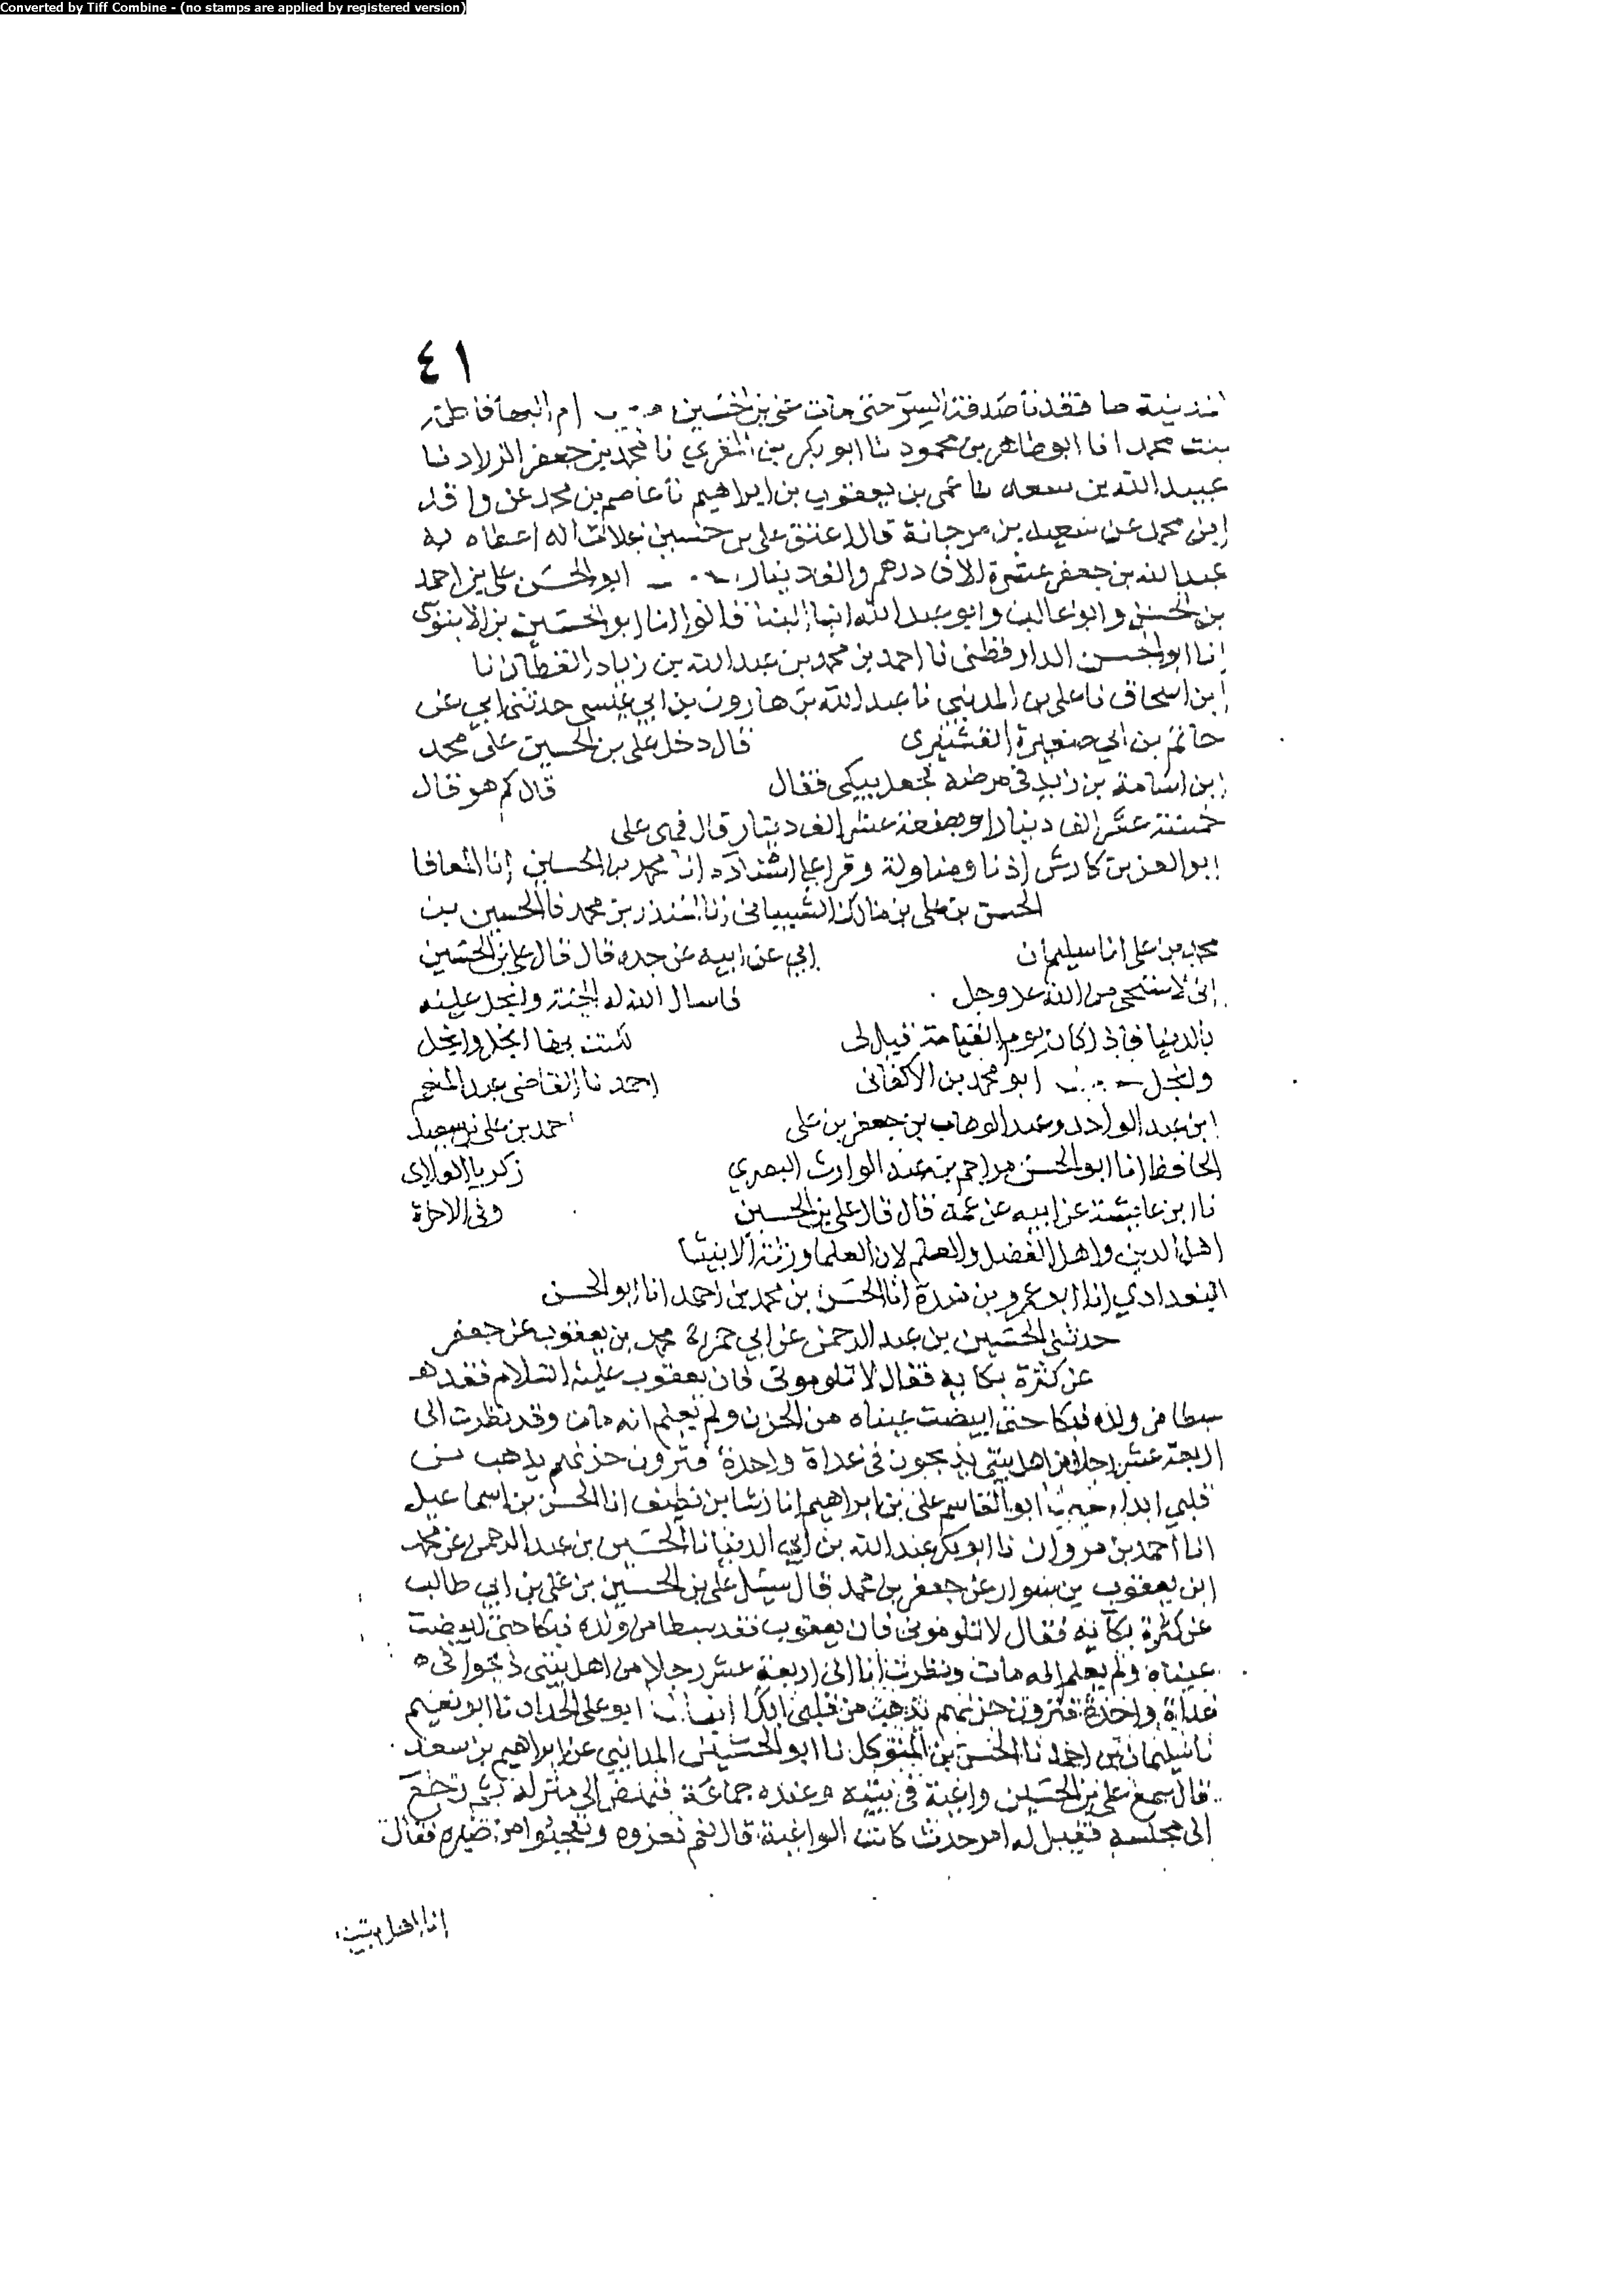 Converted by Tiff Combine - (no stamps are applied by registered version)
٤١
المدينة ما فقدنا صدقة السر حتى مات علي بن الحسين ام البها فاطمة
بنت محمد انا ابو طاهر بن محمود نا ابو بكر بن المقري نا محمد بن جعفر الزراد نا
عبيد الله بن سعد نا عمي بن يعقوب بن ابراهيم نا عاصم بن محمد عن واقد
ابن محمد عن سعيد بن مرجانة قال اعتق علي بن حسين غلاما له اعطاه به
عبد الله بن جعفر عشرة الاف درهم والف دينار ابو الحسن علي بن احمد
بن الحسن وابو غالب وابو عبد الله ابنا البنا قالوا انا ابو الحسين بن الابنوسي
انا ابو الحسن الدارقطني نا احمد بن محمد بن عبد الله بن زياد القطان نا
ابن اسحاق نا علي بن المديني نا عبد الله بن هارون بن ابي عيسى حدثني ابي عن
حاتم بن ابي صغيرة القشيري قال دخل علي بن الحسين على محمد
ابن اسامة بن زيد في مرضه فجعل يبكي فقال قال كم هو قال
خمسة عشر الف دينار او بضعة عشر الف دينار قال فهي علي
ابو العز بن كادش اذنا ومناولة وقرا علي اسناده انا محمد بن الحسين انا المعافا
الحسن بن علي بن مالك الشيباني نا المنذر بن محمد نا الحسين بن
محمد بن علي انا سليمان ابي عن ابيه عن جده قال قال علي بن الحسين
اني لاستحي من الله عز وجل فاسال الله له الجنة وابخل عليه
بالدنيا فاذا كان يوم القيامة قيل لي كنت بها ابخل وابخل
وابخل ابو محمد بن الاكفاني احمد نا القاضي عبد المنعم
ابن عبد الواحد وعبد الوهاب بن جعفر بن علي احمد بن علي بن سعيد
الحافظ انا ابو الحسن مزاحم بن عبد الوارث البصري زكريا الغلابي
نا ابن عائشة عن ابيه عن عمه قال قال علي بن الحسين وفي الاخرة
اهل الدين واهل الفضل والعلم لان العلما ورثة الانبيا
البغدادي انا ابو عمرو بن مندة انا الحسن بن محمد بن احمد انا ابو الحسن
حدثني الحسين بن عبد الرحمن عن ابي حمزة محمد بن يعقوب عن جعفر
عن كثرة بكايه فقال لا تلوموني فان يعقوب عليه السلام فقد
سبطا من ولده فبكا حتى ابيضت عيناه من الحزن ولم يعلم انه مات وقد نظرت الى
اربعة عشر رجلا من اهل بيتي يذبحون في غداة واحدة فترون حزنهم يذهب من
قلبي ابدا ابو القاسم علي بن ابراهيم انا رشا بن نظيف انا الحسن بن اسماعيل
انا احمد بن مروان نا ابو بكر عبد الله بن ابي الدنيا نا الحسين بن عبد الرحمن عن محمد
ابن يعقوب بن سوار عن جعفر بن محمد قال سئل علي بن الحسين بن علي بن ابي طالب
عن كثرة بكائه فقال لا تلوموني فان يعقوب فقد سبطا من ولده فبكا حتى ابيضت
عيناه ولم يعلم انه مات ونظرت انا الى اربعة عشر رجلا من اهل بيتي ذبحوا في
غداة واحدة فترون حزنهم يذهب من قلبي ابدا ابو علي الحداد نا ابو نعيم
نا سليمان بن احمد نا الحسن بن المتوكل نا ابو الحسن المدايني عن ابراهيم بن سعد
قال سمع علي بن الحسين واعية في بيته وعنده جماعة فنهض الى منزله ثم رجع
الى مجلسه فقيل له امن حدث كانت الواعية قال نعم فعزوه وتعجبوا من صبره فقال
انا اهل بيت